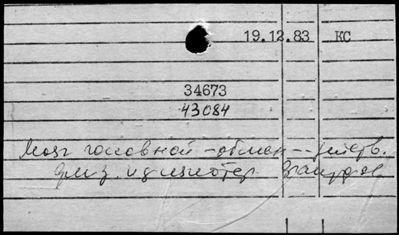 19.12.83 КС
34673
43084
Мозг головной - обмен -
физ. и физиотер.